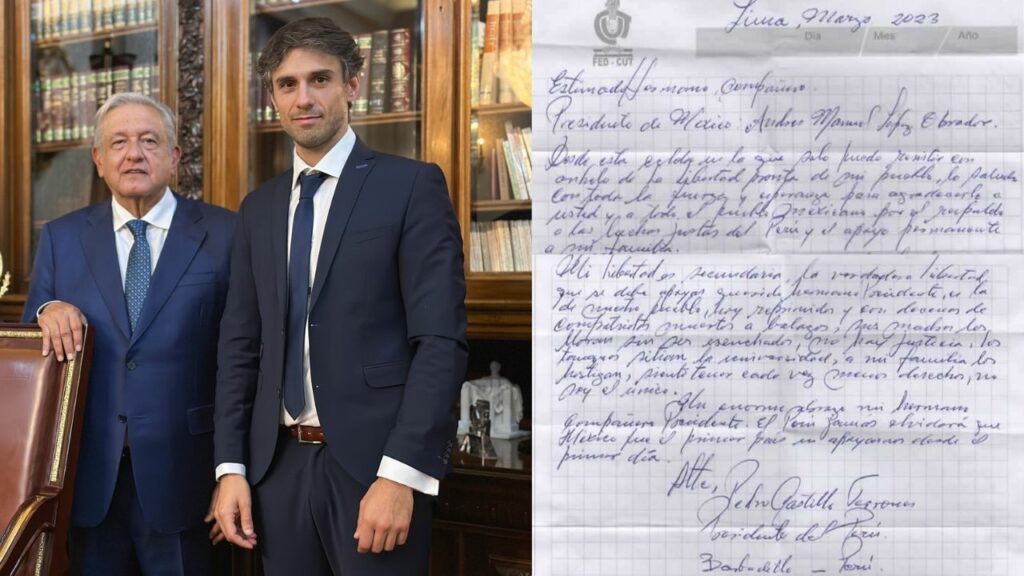 Lima, Marzo 2023
Día Mes Año
FED - CUT
Estimado Hermano, compañero.
Presidente de México: Andres Manuel López Obrador.
Desde esta celda en la que solo puedo resistir con
anhelo de la libertad pronta de mi pueblo, lo saludo
con toda la fuerza y esperanza para agradecerle a
usted y a todo el pueblo mexicano por el respaldo
a las luchas justas del Perú y el apoyo permanente
a mi familia.
Mi libertad es secundaria, la verdadera libertad
que se debe apoyar querido hermano Presidente, es la
de nuestro pueblo, hoy reprimidos y con decenas de
compatriotas muertos a balazos, sus madres los
lloran sin ser escuchados, no hay justicia, los
tanques sitian la universidad, a mi familia los
hostigan, siento tener cada vez menos derechos, no
soy el único.
Un enorme abrazo mi hermano
compañero Presidente. El Perú jamás olvidará que
México fue el primer país en apoyarnos desde el
primer día.
Atte,
Pedro Castillo Terrones
Presidente del Perú.
Barbadillo - Perú